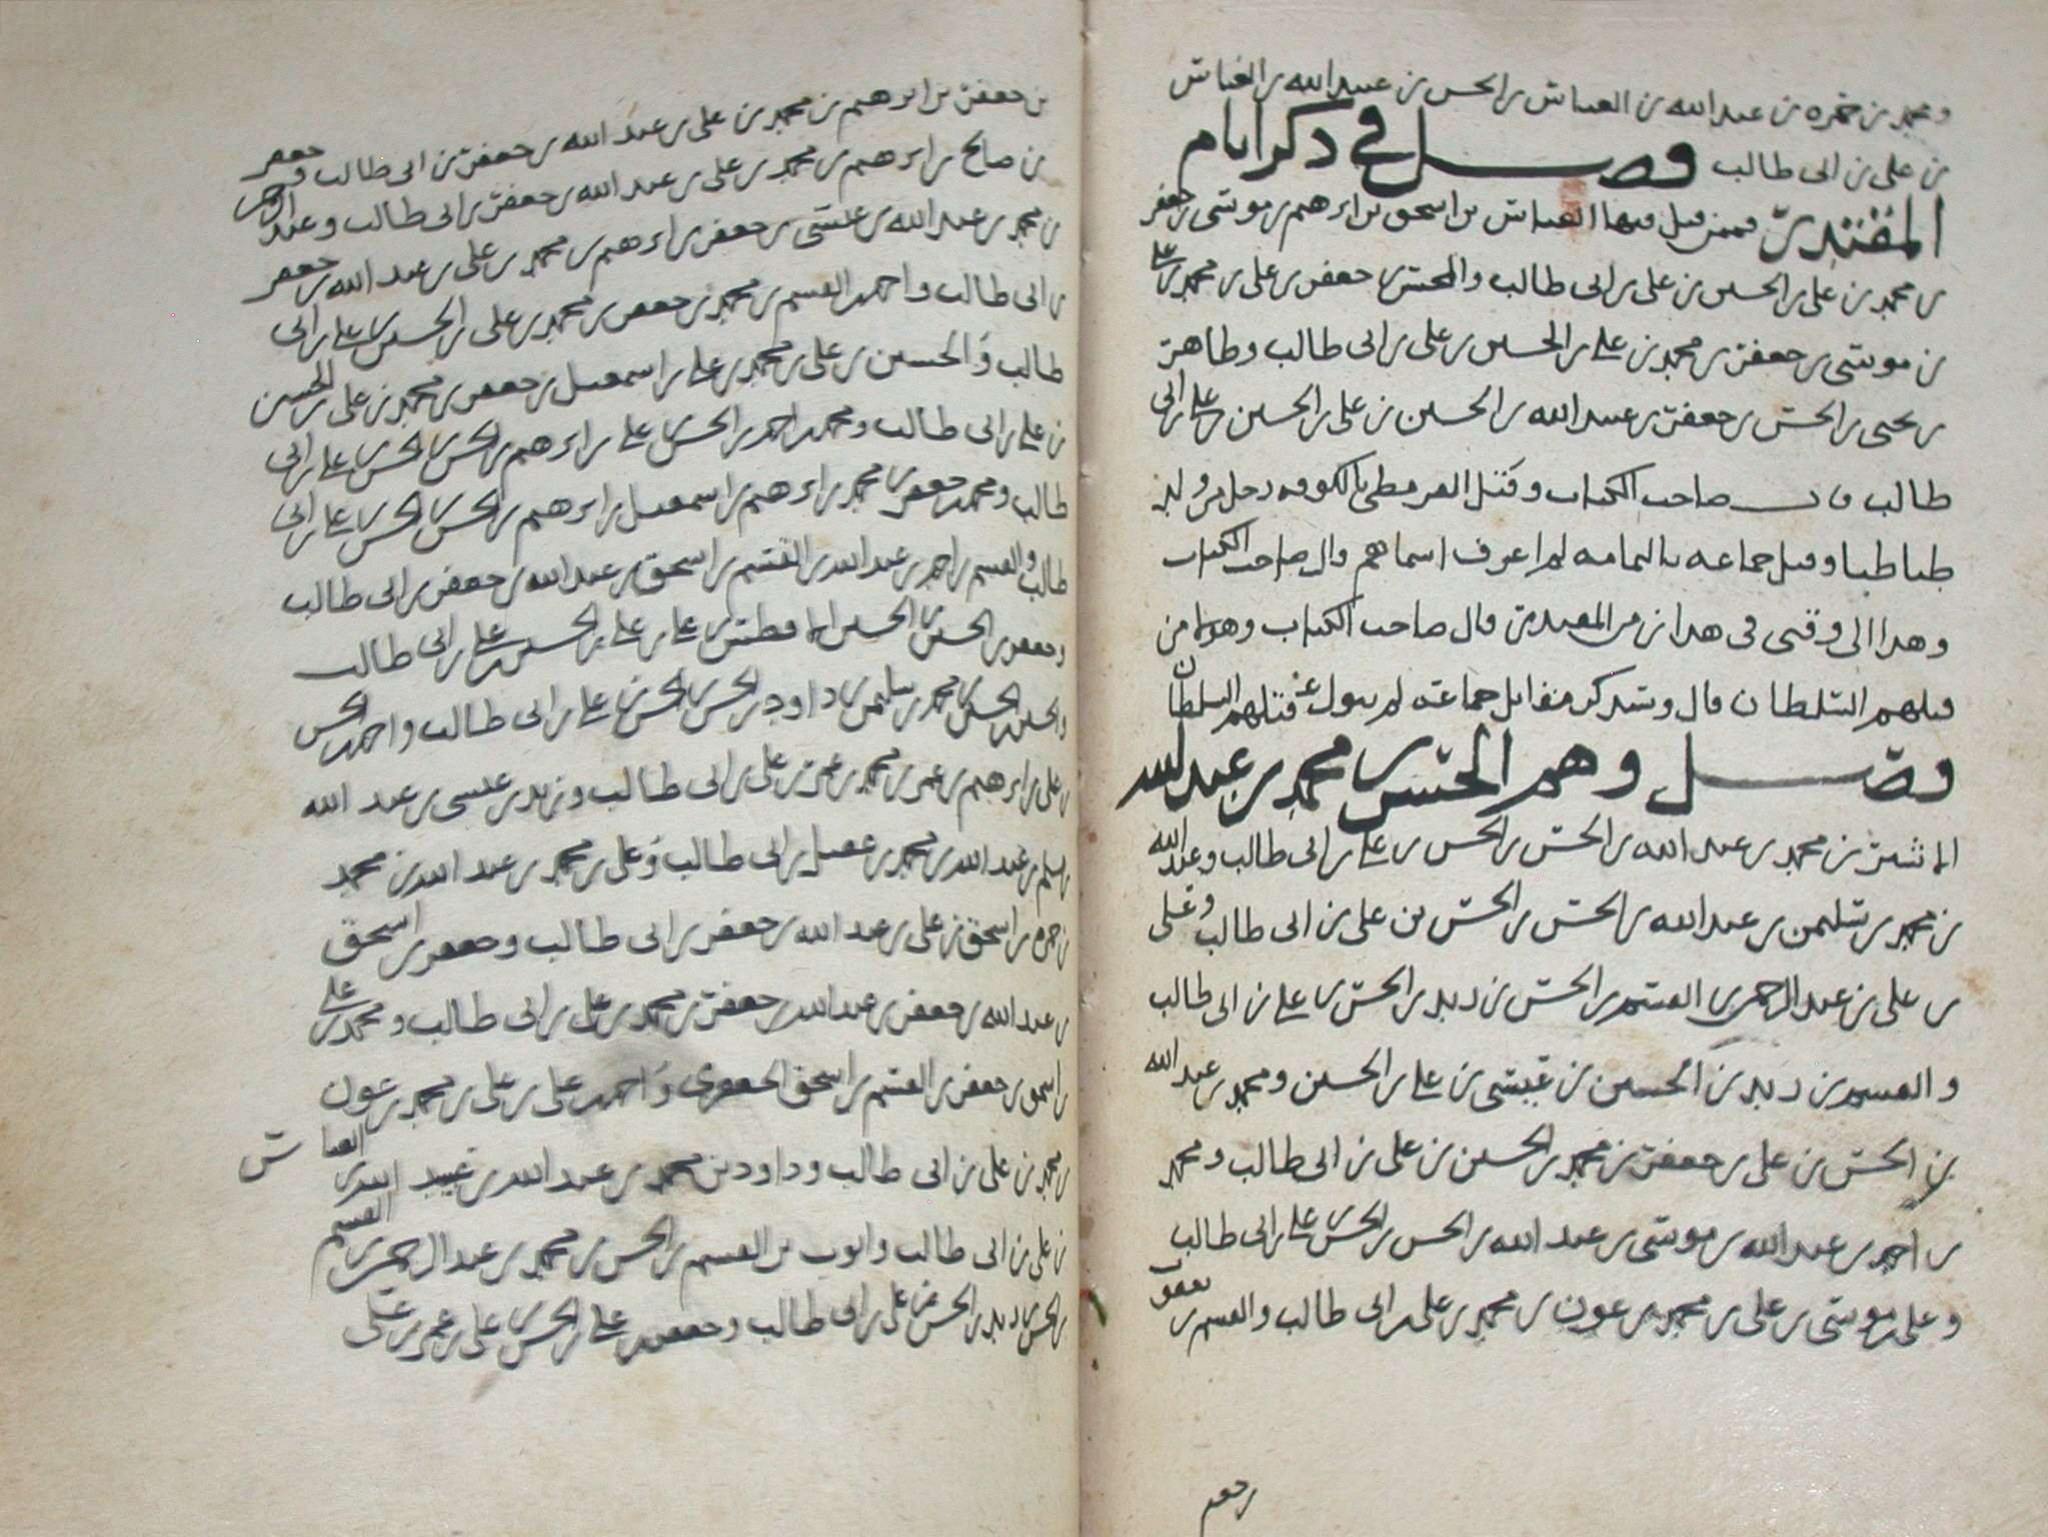 ومحمد بن حمزه بن عبد الله بن العباس بن الحسن بن عبيد الله بن العباس
بن علي بن ابي طالب فصل في ذكر ايام
المقتدر فممن قتل فيها العباس بن اسحق بن ابرهيم بن موسى بن جعفر
بن محمد بن علي بن الحسين بن علي بن ابي طالب والمحسن بن جعفر بن علي بن محمد بن علي
بن موسى بن جعفر بن محمد بن علي بن الحسين بن علي بن ابي طالب وطاهر
بن يحيى بن الحسن بن جعفر بن عبيد الله بن الحسين بن علي بن الحسين بن علي بن ابي
طالب قال صاحب الكتاب وقتل القرمطي بالكوفه رجل من ولد
طباطبا وقتل جماعه باليمامه لم اعرف اسماهم قال صاحب الكتاب
وهذا الى وقتي في هذا زمن المقتدر قال صاحب الكتاب وهولا من
قتلهم السلطان قال وسنذكر مقاتل جماعه لم يتول قتلهم السلطان
فصل وهم الحسن بن محمد بن عبد الله
الاشتر بن محمد بن عبد الله بن الحسن بن الحسن بن علي بن ابي طالب وعبد الله
بن محمد بن سليمن بن عبد الله بن الحسن بن الحسن بن علي بن ابي طالب وعلي
بن علي بن عبد الرحمن بن القسم بن الحسن بن زيد بن الحسن بن علي بن ابي طالب
والقسم بن زيد بن الحسين بن عيسى بن علي بن الحسين ومحمد بن عبد الله
بن الحسن بن علي بن جعفر بن محمد بن الحسين بن علي بن ابي طالب ومحمد
بن احمد بن عبد الله بن موسى بن عبد الله بن الحسن بن الحسن بن علي بن ابي طالب
وعلي بن موسى بن علي بن محمد بن عون بن محمد بن علي بن ابي طالب والقسم بن يعقوب
بن جعفر بن ابرهيم بن محمد بن علي بن عبد الله بن جعفر بن ابي طالب وجعفر
بن صالح بن ابرهيم بن محمد بن علي بن عبد الله بن جعفر بن ابي طالب وعبد الرحمن
بن محمد بن عبد الله بن عيسى بن جعفر بن ابرهيم بن محمد بن علي بن عبد الله بن جعفر
بن ابي طالب واحمد بن القسم بن محمد بن جعفر بن محمد بن علي بن الحسين بن علي بن ابي
طالب والحسين بن علي بن محمد بن علي بن اسمعيل بن جعفر بن محمد بن علي بن الحسين
بن علي بن ابي طالب ومحمد بن احمد بن الحسن بن علي بن ابرهيم بن الحسن بن الحسن بن علي بن ابي
طالب ومحمد بن جعفر بن محمد بن ابرهيم بن اسمعيل بن ابرهيم بن الحسن بن الحسن بن علي بن ابي
طالب والقسم بن احمد بن عبد الله بن القسم بن اسحق بن عبد الله بن جعفر بن ابي طالب
وجعفر بن الحسين بن الحسين الافطس بن علي بن علي بن الحسين بن علي بن ابي طالب
والحسين بن الحسين بن محمد بن سليمن بن داود بن الحسن بن الحسن بن علي بن ابي طالب واحمد بن الحسن
بن علي بن ابرهيم بن عمر بن محمد بن عمر بن علي بن ابي طالب وزيد بن عيسى بن عبد الله
بن مسلم بن عبد الله بن محمد بن عقيل بن ابي طالب وعلي بن محمد بن عبد الله بن محمد
بن حمزه بن اسحق بن علي بن عبد الله بن جعفر بن ابي طالب وجعفر بن اسحق
بن عبد الله بن جعفر بن عبد الله بن جعفر بن محمد بن علي بن ابي طالب ومحمد بن علي
بن اسحق بن جعفر بن القسم بن اسحق الجعفري واحمد بن علي بن علي بن محمد بن عون
بن محمد بن علي بن ابي طالب وداود بن محمد بن عبد الله بن عبيد الله بن العباس
بن علي بن ابي طالب وايوب بن القسم بن الحسن بن محمد بن عبد الرحمن بن القسم
بن الحسن بن زيد بن الحسن بن علي بن ابي طالب وجعفر بن علي بن الحسن بن علي بن عمر بن علي